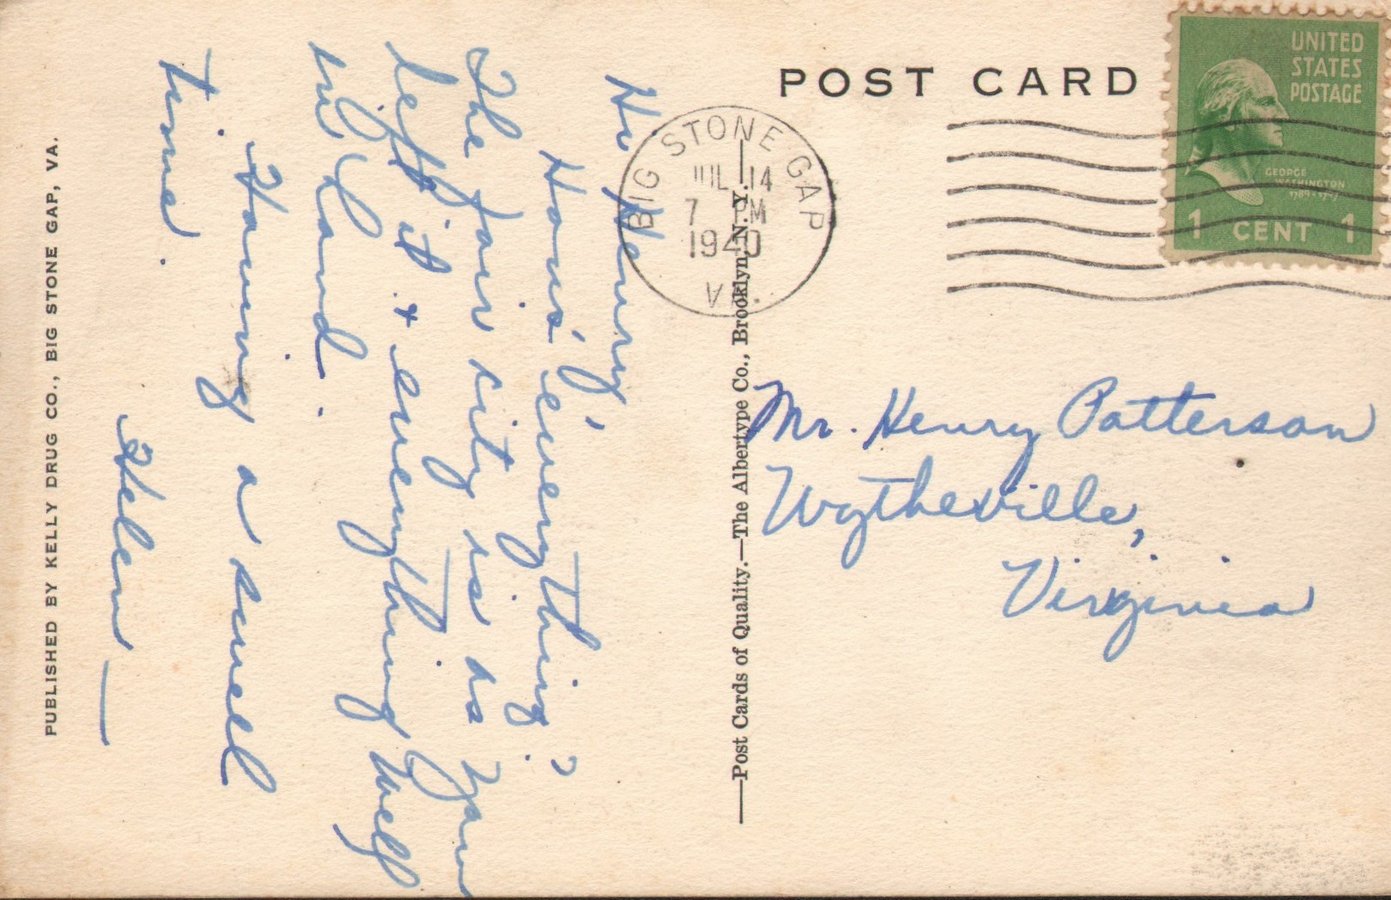 POST CARD
UNITED
STATES
POSTAGE
GEORGE
WASHINGTON
1789-1797
1 CENT 1
BIG STONE GAP
JUL 14
7 PM
1940
VA.
Hi Henry,
Hows' everything?
The fair city is as you
left it & everything well
in hand.
Having a swell
time.
Helen—
Mr. Henry Patterson
Wytheville,
Virginia
—Post Cards of Quality.—The Albertype Co., Brooklyn, N. Y.—
PUBLISHED BY KELLY DRUG CO., BIG STONE GAP, VA.